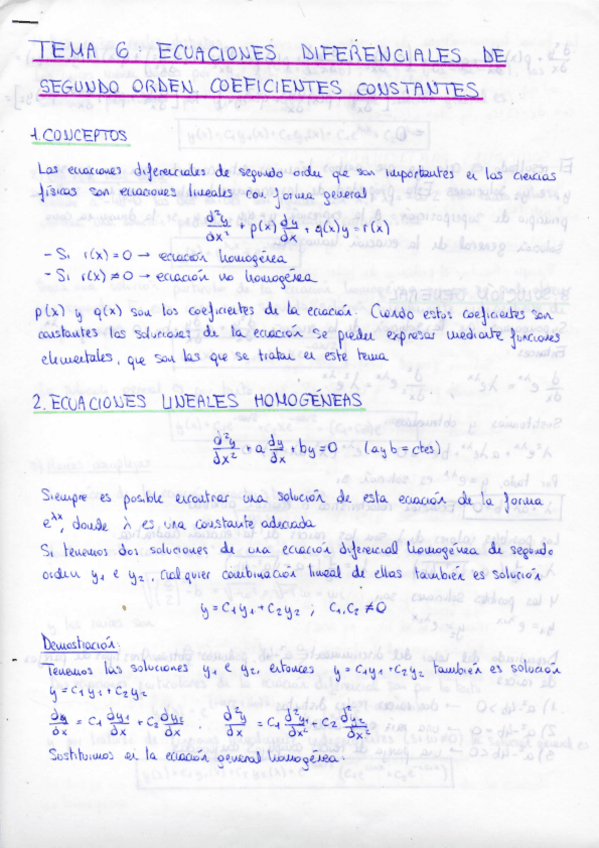 TEMA 6: ECUACIONES DIFERENCIALES DE
SEGUNDO ORDEN. COEFICIENTES CONSTANTES
1. CONCEPTOS
Las ecuaciones diferenciales de segundo orden que son importantes en las ciencias
físicas son ecuaciones lineales con forma general
d²y/dx² + p(x) dy/dx + q(x)y = r(x)
- Si r(x) = 0 → ecuación homogénea
- Si r(x) ≠ 0 → ecuación no homogénea.
p(x) y q(x) son los coeficientes de la ecuación. Cuando estos coeficientes son
constantes las soluciones de la ecuación se pueden expresar mediante funciones
elementales, que son las que se tratan en este tema
2. ECUACIONES LINEALES HOMOGÉNEAS
d²y/dx² + a dy/dx + by = 0 (a y b = ctes)
Siempre es posible encontrar una solución de esta ecuación de la forma
e^λx, donde λ es una constante adecuada
Si tenemos dos soluciones de una ecuación diferencial homogénea de segundo
orden y₁ e y₂, cualquier combinación lineal de ellas también es solución
y = C₁y₁ + C₂y₂ ; C₁, C₂ ≠ 0
Demostración:
Tenemos las soluciones y₁ e y₂, entonces y = C₁y₁ + C₂y₂ también es solución
y = C₁y₁ + C₂y₂
dy/dx = C₁ dy₁/dx + C₂ dy₂/dx d²y/dx² = C₁ d²y₁/dx² + C₂ d²y₂/dx²
Sostituimos en la ecuación general homogénea: